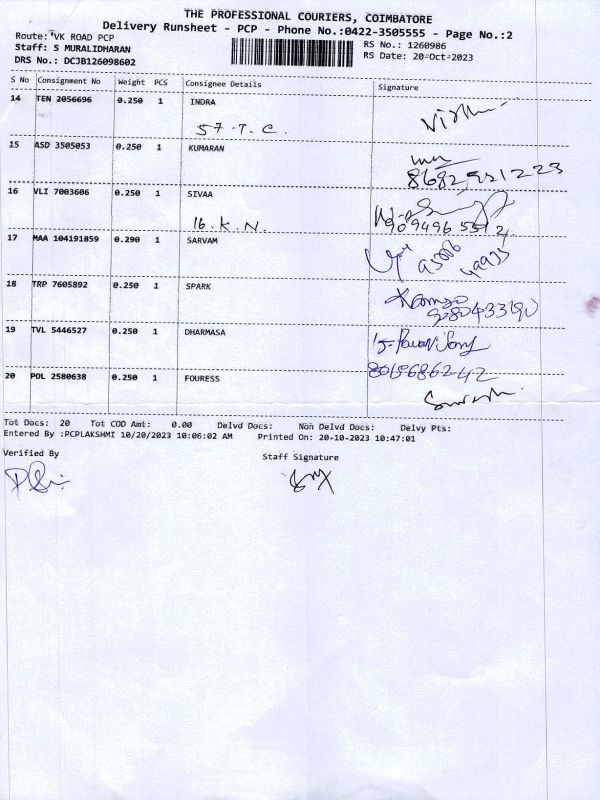 THE PROFESSIONAL COURIERS, COIMBATORE
Delivery Runsheet - PCP - Phone No.:0422-3505555 - Page No.:2
Route: VK ROAD PCP
Staff: S MURALIDHARAN
DRS No.: DCJB126098602
RS No.: 1260986
RS Date: 20-Oct-2023
S No Consignment No Weight PCS Consignee Details Signature
14 TEN 2056696 0.250 1 INDRA
57 - T. C.
15 ASD 3505053 0.250 1 KUMARAN
8682951223
16 VLI 7003606 0.250 1 SIVAA
16. K. N.
17 MAA 104191859 0.290 1 SARVAM
18 TRP 7605892 0.250 1 SPARK
19 TVL 5446527 0.250 1 DHARMASA
20 POL 2580638 0.250 1 FOURESS
Tot Docs: 20 Tot COD Amt: 0.00 Delvd Docs: Non Delvd Docs: Delvy Pts:
Entered By :PCPLAKSHMI 10/20/2023 10:06:02 AM Printed On: 20-10-2023 10:47:01
Verified By
Staff Signature